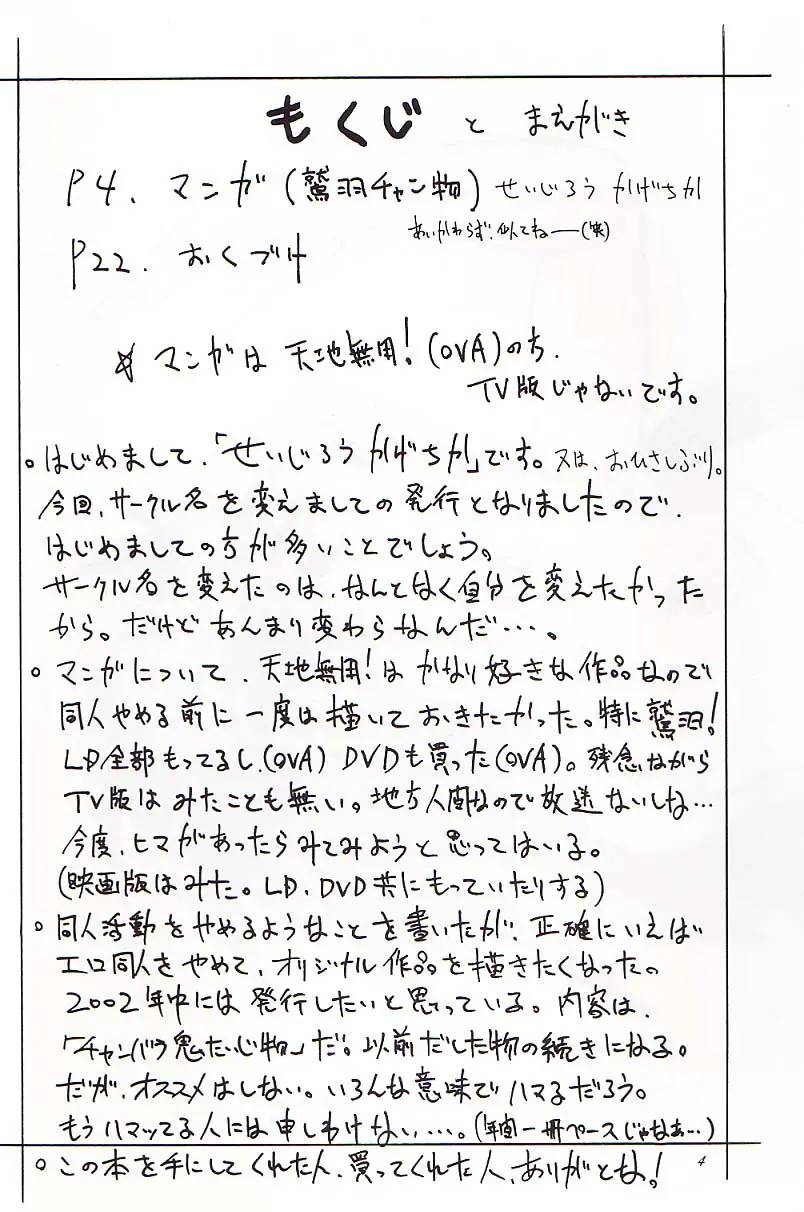 もくじ と まえがき
P4. マンガ(鷲羽チャン物) せいじろう かげちか
あいかわらず、似てねー(笑)
P22. おくづけ
☆ マンガは 天地無用!(OVA)のち.
TV版じゃないです。
○はじめまして.「せいじろう かげちか」です。又は、おひさしぶり。
今回、サークル名を変えましての発行となりましたので、
はじめましての方が多いことでしょう。
サークル名を変えたのは、なんとなく自分を変えたかった
から。だけどあんまり変わらなんだ…。
○ マンガについて、天地無用!はかなり好きな作品なので
同人やめる前に一度は描いておきたかった。特に鷲羽!
LD全部もってるし、(OVA) DVDも買った(OVA)。残念ながら
TV版はみたことも無い。地方人間なので放送ないしな…
今度、ヒマがあったらみてみようと思ってはいる。
(映画版はみた。LD、DVD共にもっていたりする)
○ 同人活動をやめるようなことを書いたが、正確にいえば
エロ同人をやめて、オリジナル作品を描きたくなったの
2002年中には発行したいと思っている。内容は、
「チャンバラ鬼たいじ物」だ。以前だした物の続きになる。
だが、オススメはしない。いろんな意味でハマるだろう。
もうハマッてる人には申しわけない…。(年間一冊ペースじゃなぁ…)
○ この本を手にしてくれた人、買ってくれた人、ありがとな!
4